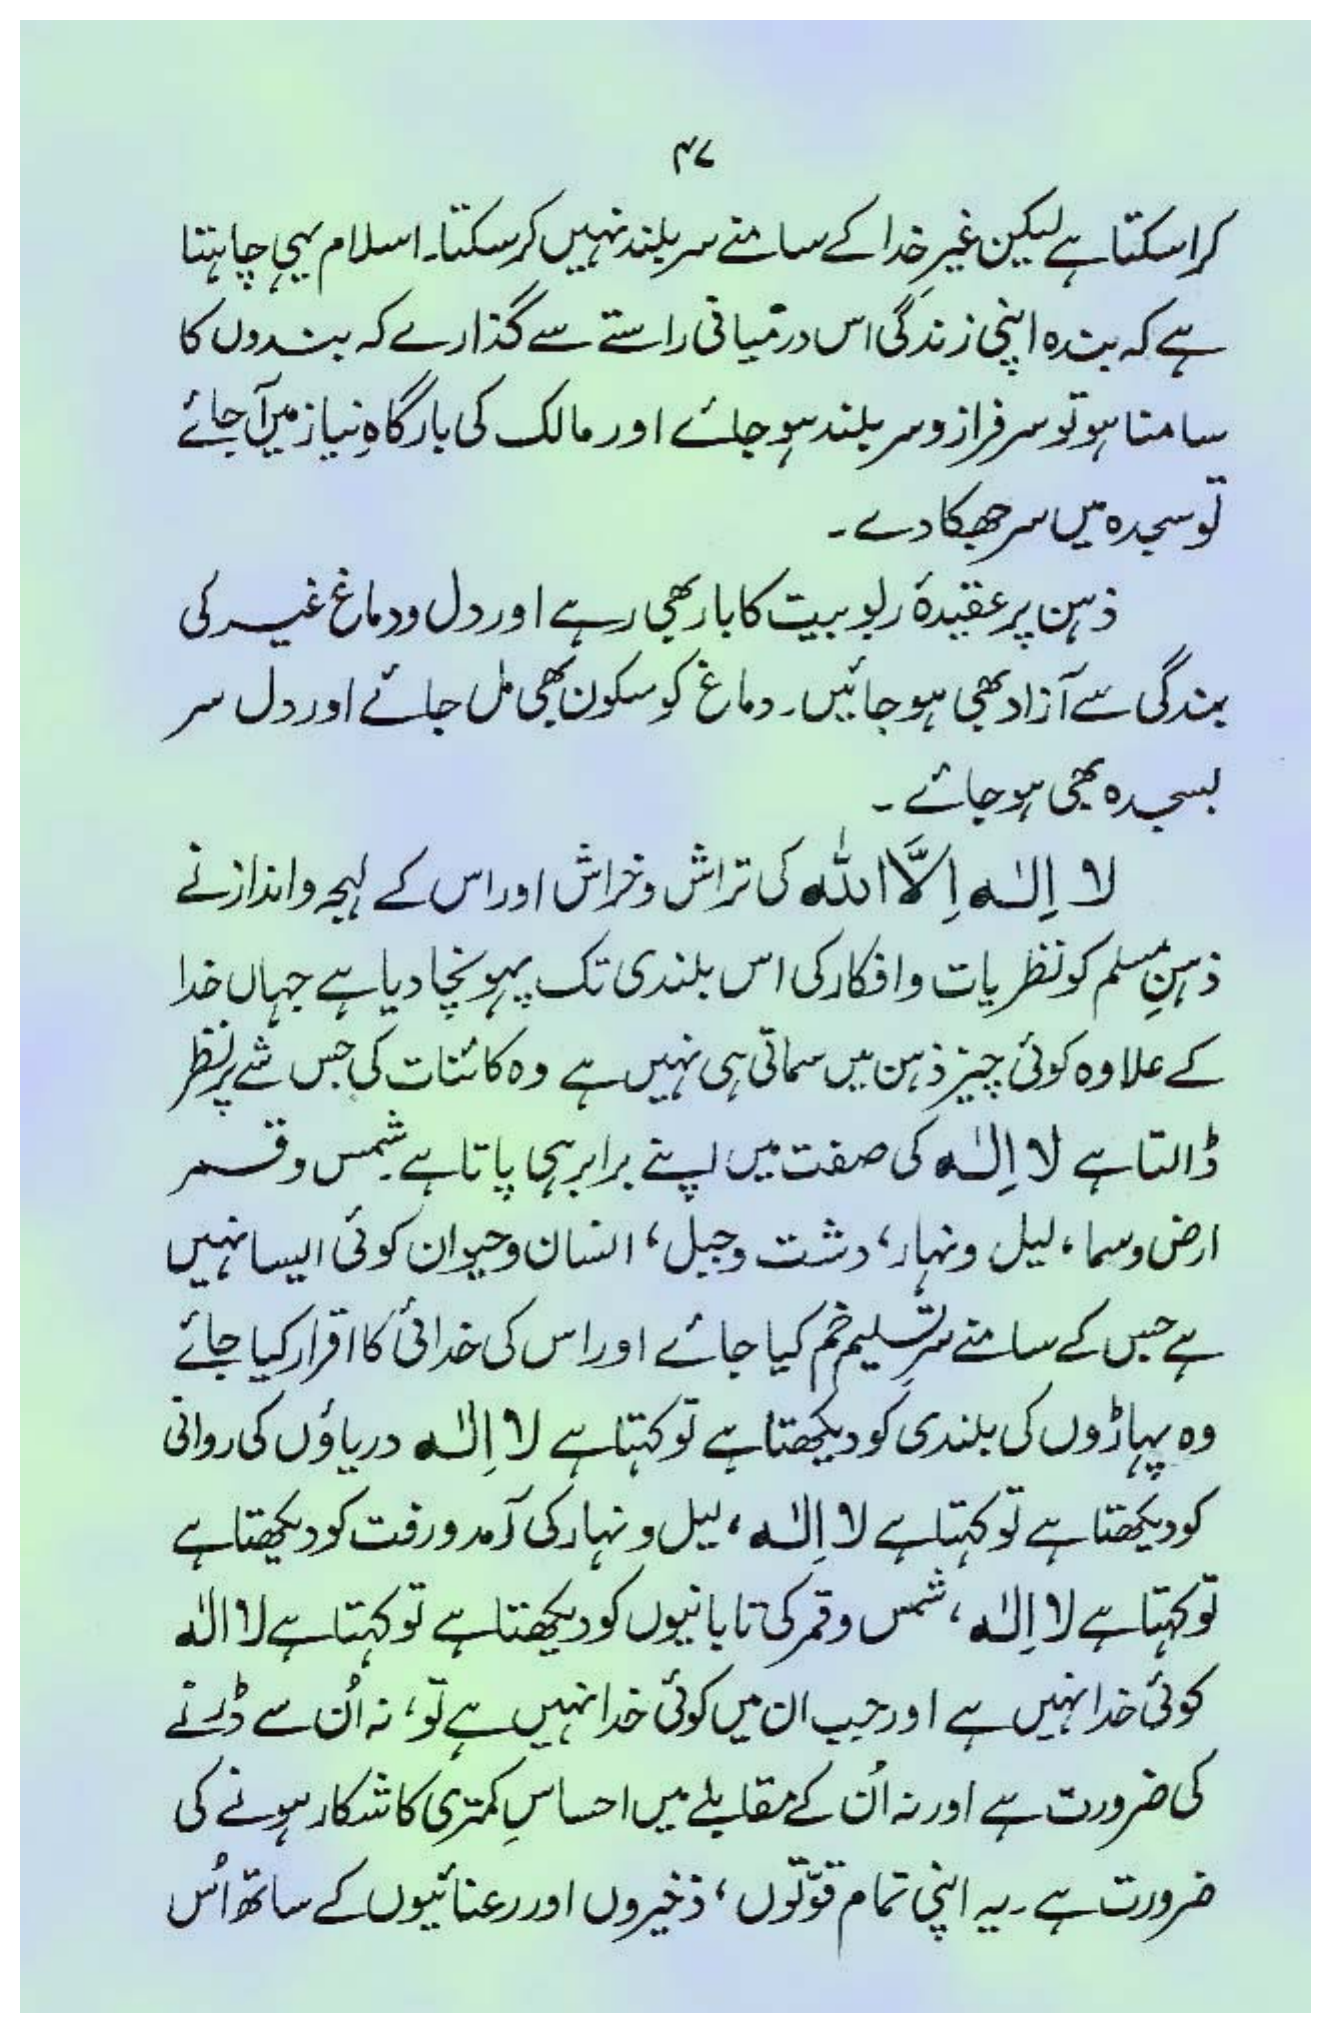 ۴۷
کراسکتا ہے لیکن غیرِ خدا کے سامنے سر بلند نہیں کرسکتا۔ اسلام یہی چاہتا
ہے کہ بندہ اپنی زندگی اس درمیانی راستے سے گذارے کہ بندوں کا
سامنا ہو تو سرفراز و سر بلند ہو جائے اور مالک کی بارگاہِ نیاز میں آجائے
تو سجدہ میں سر جھکا دے ۔
ذہن پر عقیدۂ ربوبیت کا بار بھی رہے اور دل و دماغ غیر کی
بندگی سے آزاد بھی ہو جائیں۔ دماغ کو سکون بھی مل جائے اور دل سر
بسجدہ بھی ہو جائے ۔
لا اِلٰہ اِلَّا اللہ کی تراش و خراش اور اس کے لہجہ و انداز نے
ذہنِ مسلم کو نظریات و افکار کی اس بلندی تک پہونچا دیا ہے جہاں خدا
کے علاوہ کوئی چیز ذہن میں سماتی ہی نہیں ہے وہ کائنات کی جس شے پر نظر
ڈالتا ہے لا اِلٰہ کی صفت میں اپنے برابر ہی پاتا ہے۔ شمس و قمر
ارض و سما، لیل و نہار، دشت و جبل، انسان و حیوان کوئی ایسا نہیں
ہے جس کے سامنے سرِ تسلیم خم کیا جائے اور اس کی خدائی کا اقرار کیا جائے
وہ پہاڑوں کی بلندی کو دیکھتا ہے تو کہتا ہے لا اِلٰہ دریاؤں کی روانی
کو دیکھتا ہے تو کہتا ہے لا اِلٰہ، لیل و نہار کی آمد و رفت کو دیکھتا ہے
تو کہتا ہے لا اِلٰہ، شمس و قمر کی تابانیوں کو دیکھتا ہے تو کہتا ہے لا الٰہ
کوئی خدا نہیں ہے اور جب ان میں کوئی خدا نہیں ہے تو، نہ اُن سے ڈرنے
کی ضرورت ہے اور نہ اُن کے مقابلے میں احساسِ کمتری کا شکار ہونے کی
ضرورت ہے ۔ یہ اپنی تمام قوّتوں، ذخیروں اور رعنائیوں کے ساتھ اُس